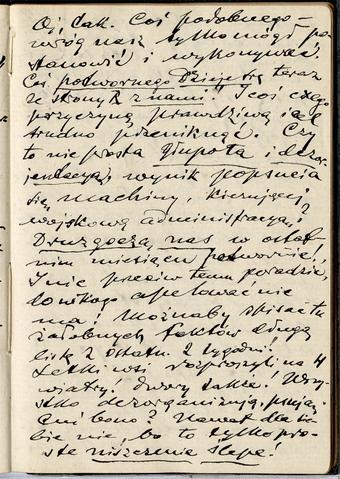 Oj, tak. Coś podobnego –
wróg nasz tylko mógł po-
stanowić i wykonywać.
Coś potwornego dzieje się teraz
ze strony R z nami! I coś czego
przyczynę prawdziwą jest
trudno przeniknąć. Czy
to nie prosta głupota i dezor-
jentacja, wynik popsucia
się machiny, kierującej
wojskową administracją?
Druzgoczą nas w ostat-
nim miesiącu potwornie,
I nic przeciw temu poradzić,
do nikogo apelować nie
ma! Możnaby spisać tu
żałobnych faktów długą
listę z ostatn. 2 tygodni!
Letki wsi rozproszyli na 4
wiatry! Dwory także! Wszy-
stko dezorganizują, psują,
Cui bono? Nawet dla sie-
bie nie, bo to tylko pro-
ste niszczenie ślepe!